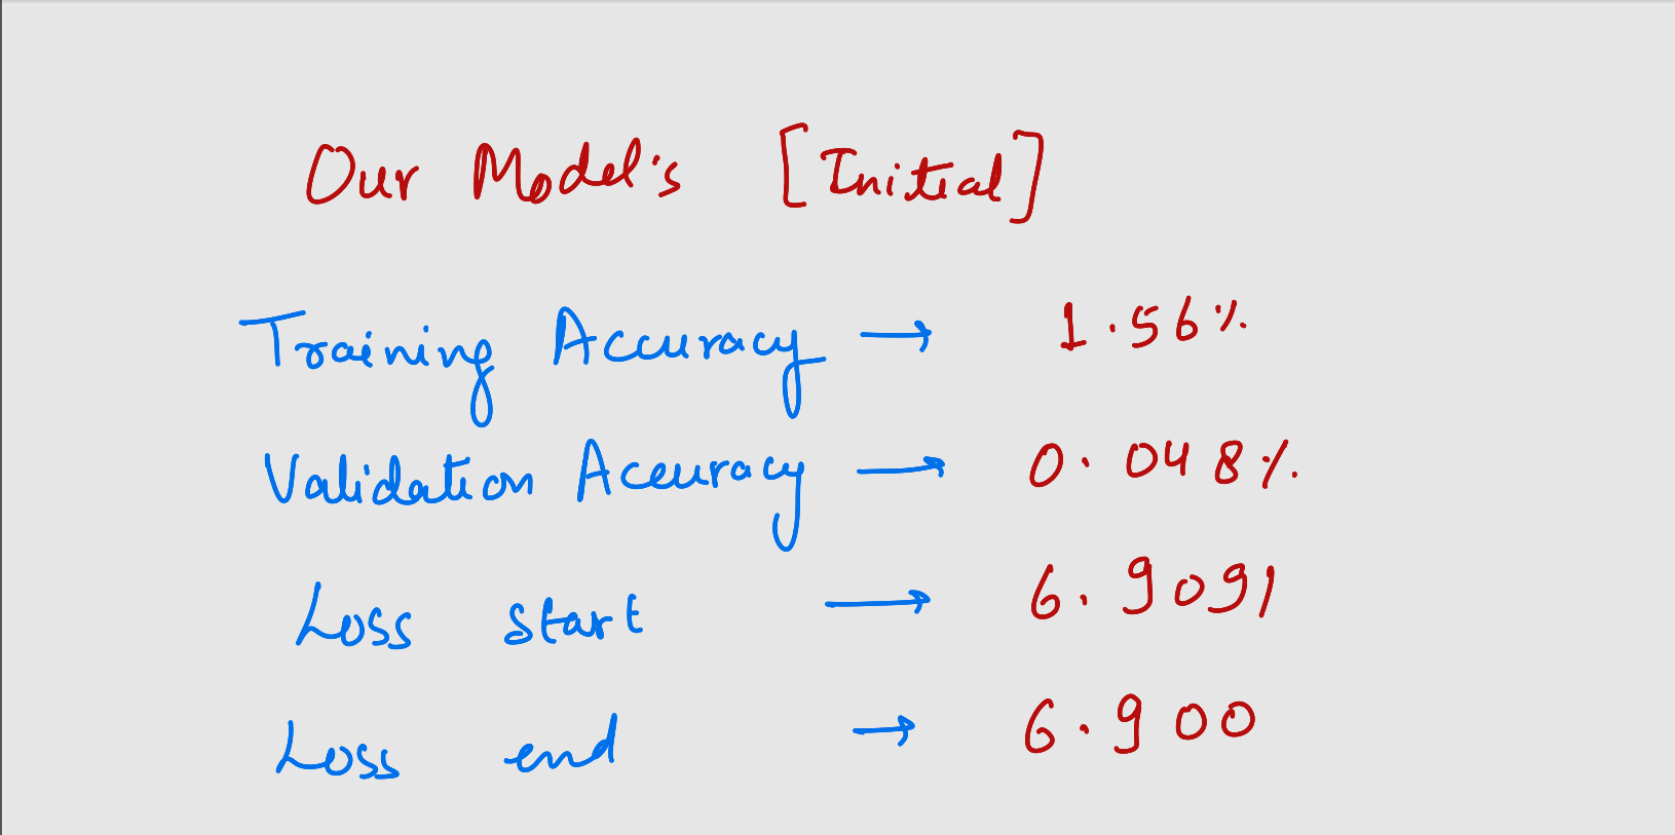 Our Model's [Initial]
Training Accuracy → 1.56%
Validation Accuracy → 0.048%
Loss start → 6.9091
Loss end → 6.900